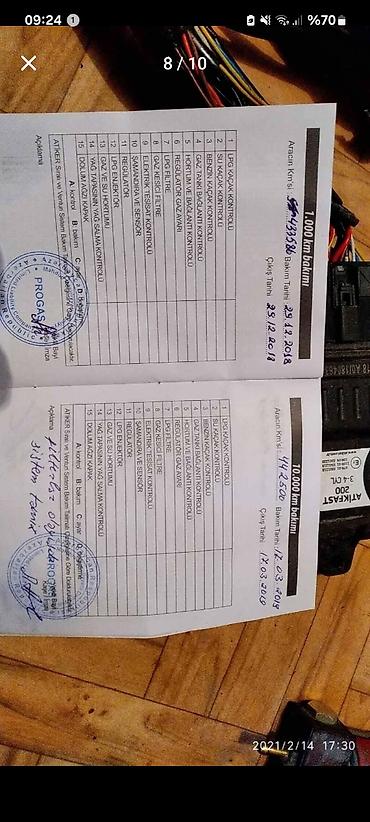 09:24
%70
8 / 10
1.000 km bakımı
Aracın Km'si 433536 Bakım Tarihi 29.12.2018
Çıkış Tarihi 29.12.2018
1 LPG KAÇAK KONTROLÜ
2 SU KAÇAK KONTROLÜ
3 BENZİN KAÇAK KONTROLÜ
4 GAZ TANKI BAĞLANTI KONTROLÜ
5 HORTUM VE BAĞLANTI KONTROLÜ
6 REGÜLATÖR GAZ AYARI
7 LPG FİLTRE
8 GAZ KESİCİ FİLTRE
9 ELEKTRİK TESİSAT KONTROLÜ
10 ŞAMANDIRA VE SENSÖR
11 REGÜLATÖR
12 LPG ENJEKTÖR
13 GAZ VE SU HORTUMU
14 YAĞ TAPASININ YAĞ SALMA KONTROLÜ
15 DOLUM AĞZI KAPAK
A: kontrol B: bakım C: ayar
ATİKER Sıralı ve Venturi Sistem Bakım Talimatı
Açıklama
PROGAS
10.000 km bakımı
Aracın Km'si 442500 Bakım Tarihi 17.03.2019
Çıkış Tarihi 17.03.2019
1 LPG KAÇAK KONTROLÜ
2 SU KAÇAK KONTROLÜ
3 BENZİN KAÇAK KONTROLÜ
4 GAZ TANKI BAĞLANTI KONTROLÜ
5 HORTUM VE BAĞLANTI KONTROLÜ
6 REGÜLATÖR GAZ AYARI
7 LPG FİLTRE
8 GAZ KESİCİ FİLTRE
9 ELEKTRİK TESİSAT KONTROLÜ
10 ŞAMANDIRA VE SENSÖR
11 REGÜLATÖR
12 LPG ENJEKTÖR
13 GAZ VE SU HORTUMU
14 YAĞ TAPASININ YAĞ SALMA KONTROLÜ
15 DOLUM AĞZI KAPAK
A: kontrol B: bakım C: ayar
ATİKER Sıralı ve Venturi Sistem Bakım Talimatı
Açıklama
ATIKFAST
200
3-4 CYL
2021/2/14 17:30